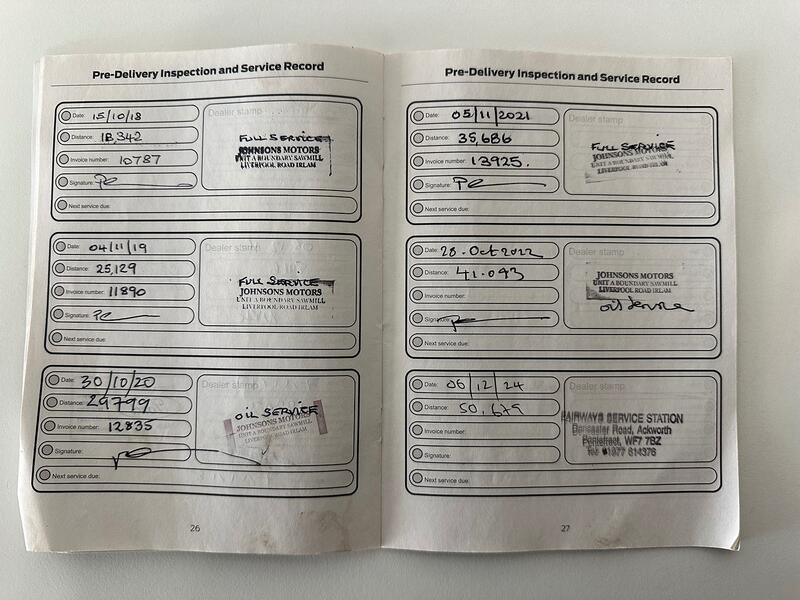 Pre-Delivery Inspection and Service Record
Date: 15/10/18
Distance: 18,342
Invoice number: 10787
Signature:
Next service due:
Dealer stamp
FULL SERVICE
JOHNSONS MOTORS
UNIT A BOUNDARY SAWMILL
LIVERPOOL ROAD IRLAM
Date: 04/11/19
Distance: 25,129
Invoice number: 11890
Signature:
Next service due:
Dealer stamp
FULL SERVICE
JOHNSONS MOTORS
UNIT A BOUNDARY SAWMILL
LIVERPOOL ROAD IRLAM
Date: 30/10/20
Distance: 29799
Invoice number: 12835
Signature:
Next service due:
Dealer stamp
OIL SERVICE
JOHNSONS MOTORS
UNIT A BOUNDARY SAWMILL
LIVERPOOL ROAD IRLAM
26
Pre-Delivery Inspection and Service Record
Date: 05/11/2021
Distance: 35,686
Invoice number: 13925.
Signature:
Next service due:
Dealer stamp
FULL SERVICE
JOHNSONS MOTORS
UNIT A BOUNDARY SAWMILL
LIVERPOOL ROAD IRLAM
Date: 28. Oct 2022
Distance: 41.093
Invoice number:
Signature:
Next service due:
Dealer stamp
JOHNSONS MOTORS
UNIT A BOUNDARY SAWMILL
LIVERPOOL ROAD IRLAM
oil service
Date: 06/12/24
Distance: 50,679
Invoice number:
Signature:
Next service due:
Dealer stamp
FAIRWAYS SERVICE STATION
Doncaster Road, Ackworth
Pontefract, WF7 7BZ
Tel: 01977 614376
27